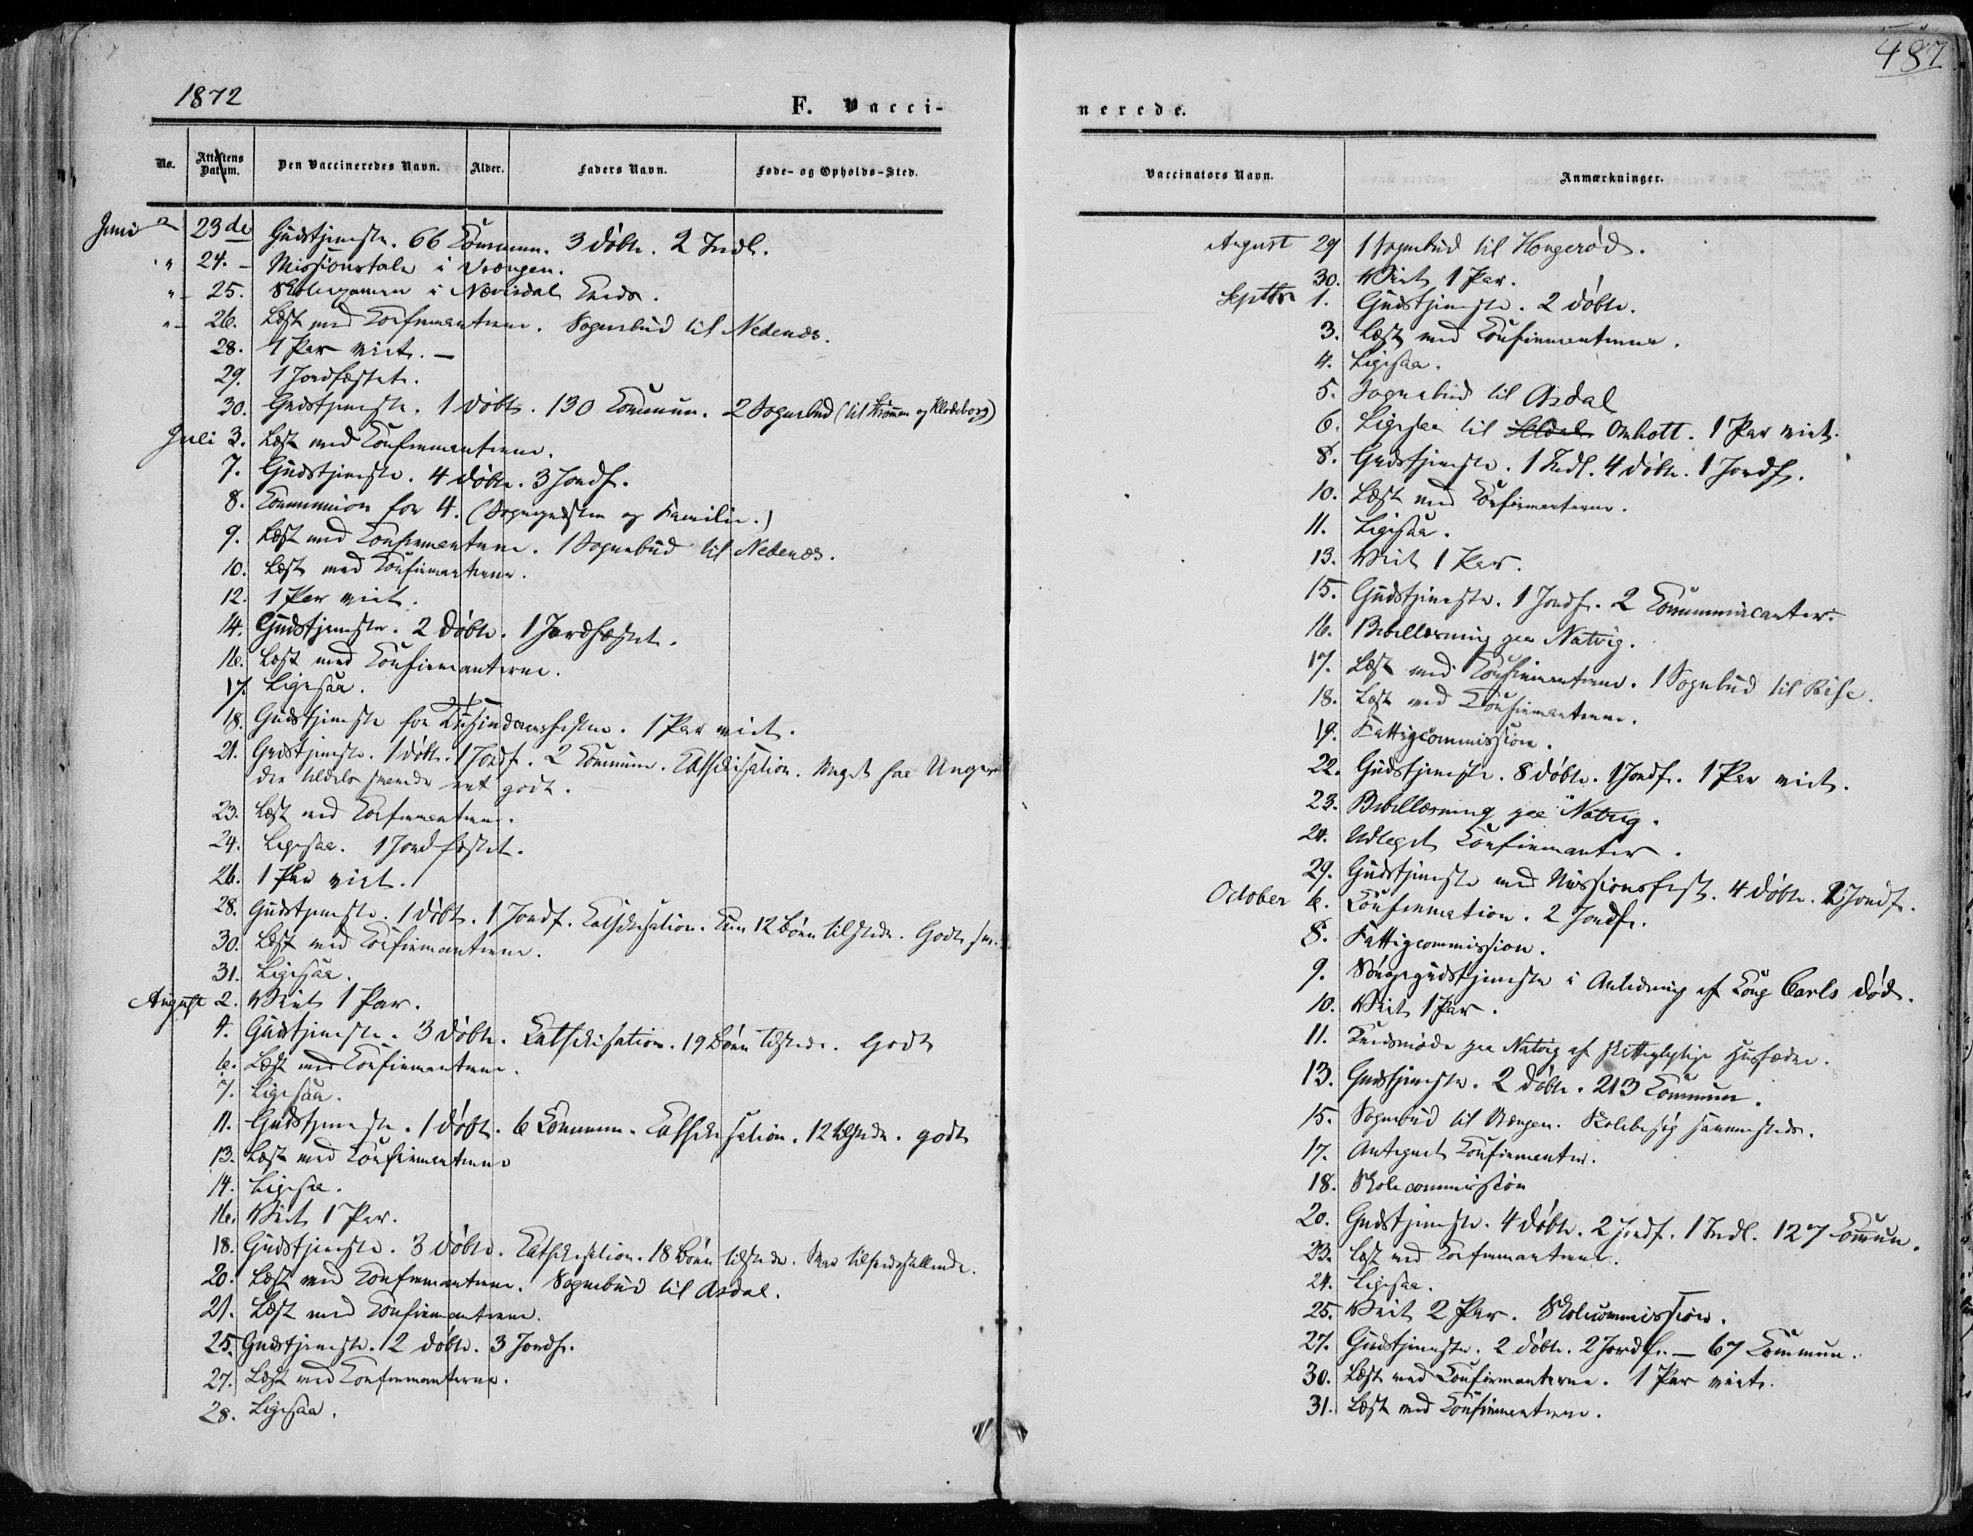 487
1872
F. Vacci-
nerede.
No.
Attestens Datum.
Den Vaccineredes Navn.
Alder.
Faders Navn.
Føde- og Opholds-Sted.
Vaccinators Navn.
Anmærkninger.
Juni 23de Gudstjeneste. 66 Commun. 3 døbte. 2 Indl.
" 24. Missionstale i Vrængen.
" 25. Skoleexamen i Nævisdal Kreds.
" 26. Læst med Confirmanterne. Sognebud til Nedenæs.
28. 1 Par viet. —
29. 1 Jordfæstet.
30. Gudstjeneste. 1 døbt. 130 Commun. 2 Sognebud (til Strømmen og Klodeborg)
Juli 3. Læst med Confirmanterne.
7. Gudstjeneste. 4 døbte. 3 Jordf.
8. Communion for 4. (Sognepresten og Familie.)
9. Læst med Confirmanterne. 1 Sognebud til Nedenæs.
10. Læst med Confirmanterne.
12. 1 Par viet.
14. Gudstjeneste. 2 døbte. 1 Jordfæstet.
16. Læst med Confirmanterne.
17. Ligesaa.
18. Gudstjeneste for Tusindaarsfesten. 1 Par viet.
21. Gudstjeneste. 1 døbt. 1 Jordf. 2 Commun. Cathekisation. Meget faa Unge
der tildels svarede ret godt.
23. Læst med Confirmanterne.
24. Ligesaa. 1 Jordfæstet.
26. 1 Par viet.
28. Gudstjeneste. 1 døbt. 1 Jordf. Cathekisation. Kun 12 Børn tilstede. Godt
30. Læst med Confirmanterne.
31. Ligesaa.
August 2. Viet 1 Par.
4. Gudstjeneste. 3 døbte. Cathekisation. 19 Børn tilstede. Godt
6. Læst med Confirmanterne.
7. Ligesaa.
11. Gudstjeneste. 1 døbt. 6 Commun. Cathekisation. 12 tilstede. godt
13. Læst med Confirmanterne
14. Ligesaa.
16. Viet 1 Par.
18. Gudstjeneste. 3 døbte. Cathekisation. 18 Børn tilstede. Svar tilfredsstillende.
20. Læst med Confirmanterne. Sognebud til Asdal.
21. Læst med Confirmanterne.
25. Gudstjeneste. 2 døbte. 3 Jordf.
27. Læst med Confirmanterne.
28. Ligesaa.
August 29 1 Sognebud til Hongerød.
30. Viet 1 Par.
Septbr 1. Gudstjeneste. 2 døbte.
3. Læst med Confirmanterne.
4. Ligesaa.
5. Sognebud til Asdal
6. Ligesaa til Omholt. 1 Par viet.
8. Gudstjeneste. 1 Indl. 4 døbte. 1 Jordf.
10. Læst med Confirmanterne.
11. Ligesaa.
13. Viet 1 Par.
15. Gudstjeneste. 1 Jordf. 2 Communicanter.
16. Bibellæsning paa Natvig.
17. Læst med Confirmanterne. 1 Sognebud til Rise.
18. Læst med Confirmanterne.
19. Fattigcommission.
22. Gudstjeneste. 8 døbte. 1 Jordf. 1 Par viet.
23. Bibellæsning paa Natvig.
24. Udleget Confirmanter.
29. Gudstjeneste med Missionsfest. 4 døbte. 2 Jordf.
October 6. Confirmation. 2 Jordf.
8. Fattigcommission.
9. Sørgegudstjeneste i Anledning af Kong Carls død.
10. Viet 1 Par.
11. Kredsmøde paa Natvig af skattepligtige Husfædre.
13. Gudstjeneste. 2 døbte. 213 Commun.
15. Sognebud til Vrængen. Skolebesøg sammesteds.
17. Antegnet Confirmanter.
18. Skolecommission
20. Gudstjeneste. 4 døbte. 2 Jordf. 1 Indl. 127 Commun.
23. Læst med Confirmanterne.
24. Ligesaa.
25. Viet 2 Par. Skolecommission.
27. Gudstjeneste. 2 døbte. 2 Jordf. — 67 Commun.
30. Læst med Confirmanterne. 1 Par viet.
31. Læst med Confirmanterne.